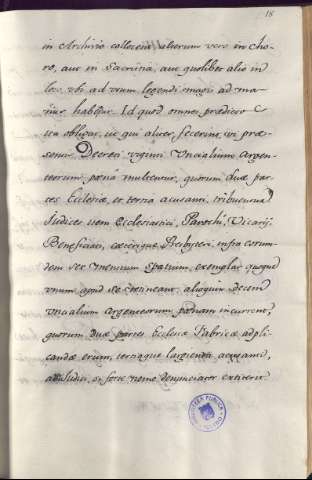 18
in Archivio collocent, alterum vero in cho-
ro, aut in Sacristia, aut quolibet alio in
loco, ubi ad usum legendi magis ad ma-
nus habetur. Id quod omnes prædicti
ita obligat, ut qui aliter fecerint, in præ-
sentis Decreti viginti Uncialium Argen-
teorum pœna multentur, quorum duæ par-
tes Ecclesiæ, et tertia accusanti, tribuetur
Judices item Ecclesiastici, Parochi, Vicarij
Beneficiati, cæterique Presbyteri infra eorum-
dem sex Mensium Spatium, exemplar quoque
unum apud se retineant: alioquin decem
Uncialium Argenteorum pœnam incurrent,
quorum duæ partes Ecclesiæ Fabricæ adpli-
candæ erunt, tertiaque largienda accusanti,
aut Judici, si forte nemo denunciator extiterit
BIBLIOTECA PUBLICA